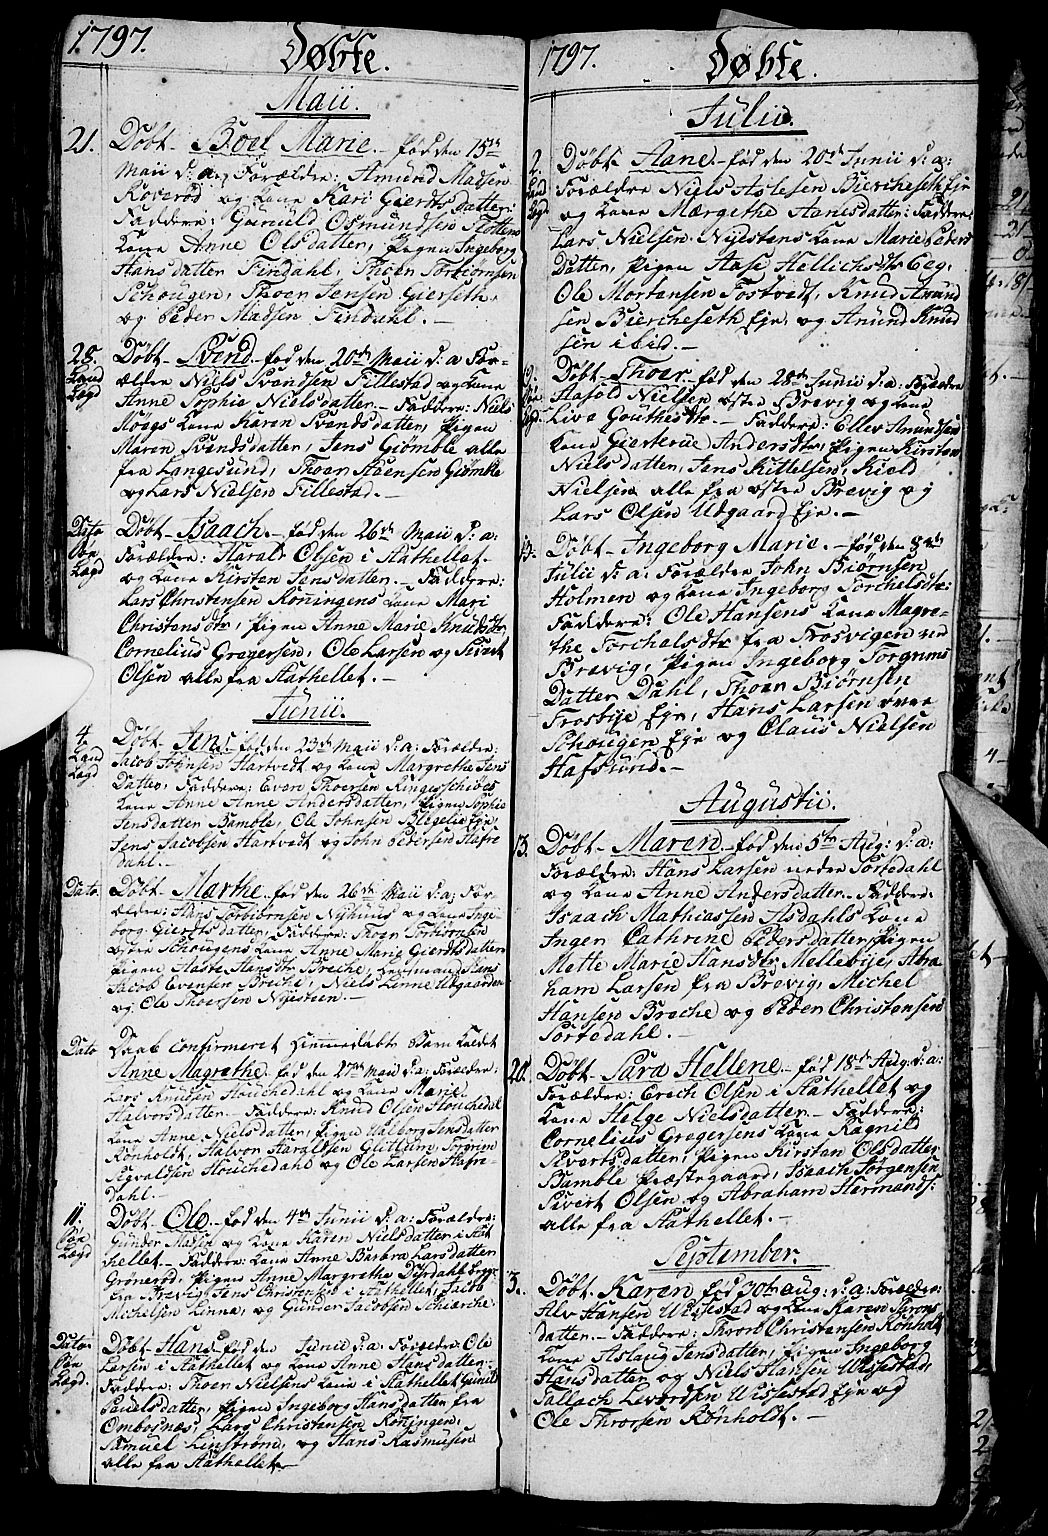 1797.
Døbte.
Maii.
21. Døbt - Boel Marie - fød den 15de
Maii d: a, Forældre: Amund Madsen
Roverød og Kone Kari Gierdtsdatter:
Faddere: Gunuld Osmundsen Flottens
Kone Anne Olsdatter, Pigen Ingeborg
Hansdatter Findahl, Thoer Torbiørnsen
Schougen, Thoer Jensen Gierseth,
og Peder Madsen Findahl. -
28. Døbt - Svend - fød den 20de Maii d: a For-
Land ældre Niels Svendsen Tillestad og Kone
Lægd Anne Sophie Nielsdatter. - Faddere: Niels
Møegs Kone Karen Svendsdatter, Pigen
Maren Svendsdatter, Jens Giømble alle
fra Langesund, Thoer Steensen Giømble
og Lars Nielsen Tillestad. -
Dato Døbt - Isaach - fød den 26de Maii d: a:
Søe Forældre: Harald Olsen i Stathellet
Lægd og Kone Kirsten Jensdatter. - Faddere:
Lars Christensen Køningens Kone Mari
Christensdtr, Pigen Anne Marie Knudsdtr
Cornelius Gregersen, Ole Larsen og Sivert
Olsen alle fra Stathellet. -
Junii.
4. Døbt - Jens - fød den 23de Maii d: a: Forældre:
Land Jacob Johnsen Hartvedt og Kone Margrethe Jens
Lægd Datter, Faddere: Even Thoersen Ringsschiøes
Kone Anne Anne Andersdatter, Pigen Sophie
Jensdatter Bamble, Ole Johnsen Blegelie Eje,
Jens Jacobsen Hartvedt og John Pedersen Hafre
dahl. -
Dato Døbt - Marthe - fød den 26de Maii d: a: For-
ældre: Hans Torbiørnsen Nyhuus og Kone Inge-
borg Gierdtsdatter, Faddere: Thoer Torbiørnsen
Schougens Kone Anne Marie Gierdtsdatter
Pigen Aaste Hansdtr Breche, Leutnand Hans
Jacob Evensen Breche, Niels Linne Udgaarden
og Ole Thoersen Nysteen. -
Dato Daab confirmeret hiemmedøbt Barn kaldet
Anne Magrethe - fød den 27de Maii d: a: Forældre:
Lars Knudsen Houchedahl og Kone Marie
Halvorsdatter - Faddere: Knud Olsen Houchedal
Kone Anne Nielsdatter, Pigen Walborg Jensdatter
Rønholdt, Halvor Haraldsen Gluttum, Torgrim
Segvaldsen Houchedahl og Ole Larsen Hafre-
dahl. -
11. Døbt - Ole - fød den 4de Junii d: a: Forældre:
Søe Gunder Madsen og Kone Karen Nielsdatter i Stat
Lægd hellet - Faddere: Kone Anne Barbra Larsdatter
Grønerød, Pigen Anne Margrethe Dyrdahl begge
fra Brevig, Jens Christensen i Stathellet, Jacob
Michelsen Linna, og Gunder Jacobsen Schierche.
Dato Døbt Hans - fød den Junii d: a: Forældre Ole
Søe Larsen i Stathellet og Kone Anne Hansdatter:
Lægd. Faddere: Thoer Nielsens Kone i Stathellet Gunild
Povelsdatter, Pigen Ingeborg Hansdatter fra
Ombosnæs, Lars Christensen Køningen,
Samuel Lindstrøm, og Hans Rasmusen
alle fra Stathellet. -
1797.
Døbte.
Julii.
2. Døbt Aane - fød den 20de Junii d: a:
Land Forældre Niels Aslesen Biercheseth Eje
Lægd og Kone Mergethe Hansdatter: Faddere:
Lars Nielsen Nystens Kone Marie Peders
Datter, Pigen Aase Hellichsdtr Eeg,
Ole Mortensen Tostvedt, Knud Amund
sen Biercheseth Eje, og Amund Knud
sen ibid. -
Døbt - Thoer - fød den 28de Junii d: a: Forældre
Hafold Nielsen østre Brevig og Kone
Live Gouthesdtr. - Faddere: Ellev Amundsen
Kone Giertrue Andersdtr, Pigen Kirsten
Nielsdatter, Jens Kittelsen, Kield
Nielsen alle fra østre Brevig og
Lars Olsen Udgaard Eje. -
Døbt - Ingeborg Marie. - fød den 8de
Julii d: a: Forældre John Biørnsen
Holmen og Kone Ingeborg Torchelsdtr:
Faddere: Ole Hansens Kone Magre-
the Torchelsdtr fra Trosvigen ved
Brevig, Pigen Ingeborg Torgrims
Datter Dahl, Thoer Biørnsen
Trosbye Eje, Hans Larsen øvre
Schougen Eje og Claus Nielsen
Hafsund. -
Augustii.
13. Døbt - Maren - fød den 5te Aug: d: a:
Forældre: Hans Larsen nedre Tortedahl
og Kone Anne Andersdatter. Faddere:
Isaach Mathiassen Asdahls Kone
Inger Cathrine Pedersdatter, Pigen
Mette Marie Hansdtr Mellebye, Abra
ham Larsen fra Brevig, Michel
Hansen Breche og Peder Christensen
Tortedahl. -
20. Døbt - Sara Hellene - fød 18de Aug: d: a:
Forældre: Erech Olsen i Stathellet og
Kone Helge Nielsdatter - Faddere:
Cornelius Gregersens Kone Ragnild
Sivertsdatter, Pigen Kirsten Olsdatter
Bamble Præstegaard, Isaach Jørgensen
Sivert Olsen og Abraham Hermands:
alle fra Stathellet. -
September.
3. Døbt - Karen fød 30te Aug: d: a: Forældre:
Alv Hansen Wissestad og Kone Karen Sørens
datter. - Faddere: Thron Christensen Rønholt
Kone Aslaug Jensdatter, Pigen Ingeborg
Hansdatter og Niels Hansen Wissestad,
Tallach Levordsen Wissestad Eje og
Ole Throrsen Rønholdt. -